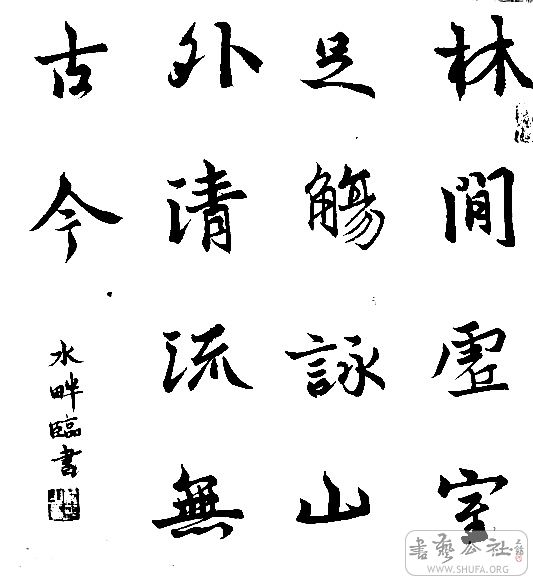 林間虛室
足觴詠山
外清流無
古今
水畔臨書
書藝公社
WWW.SHUFA.ORG